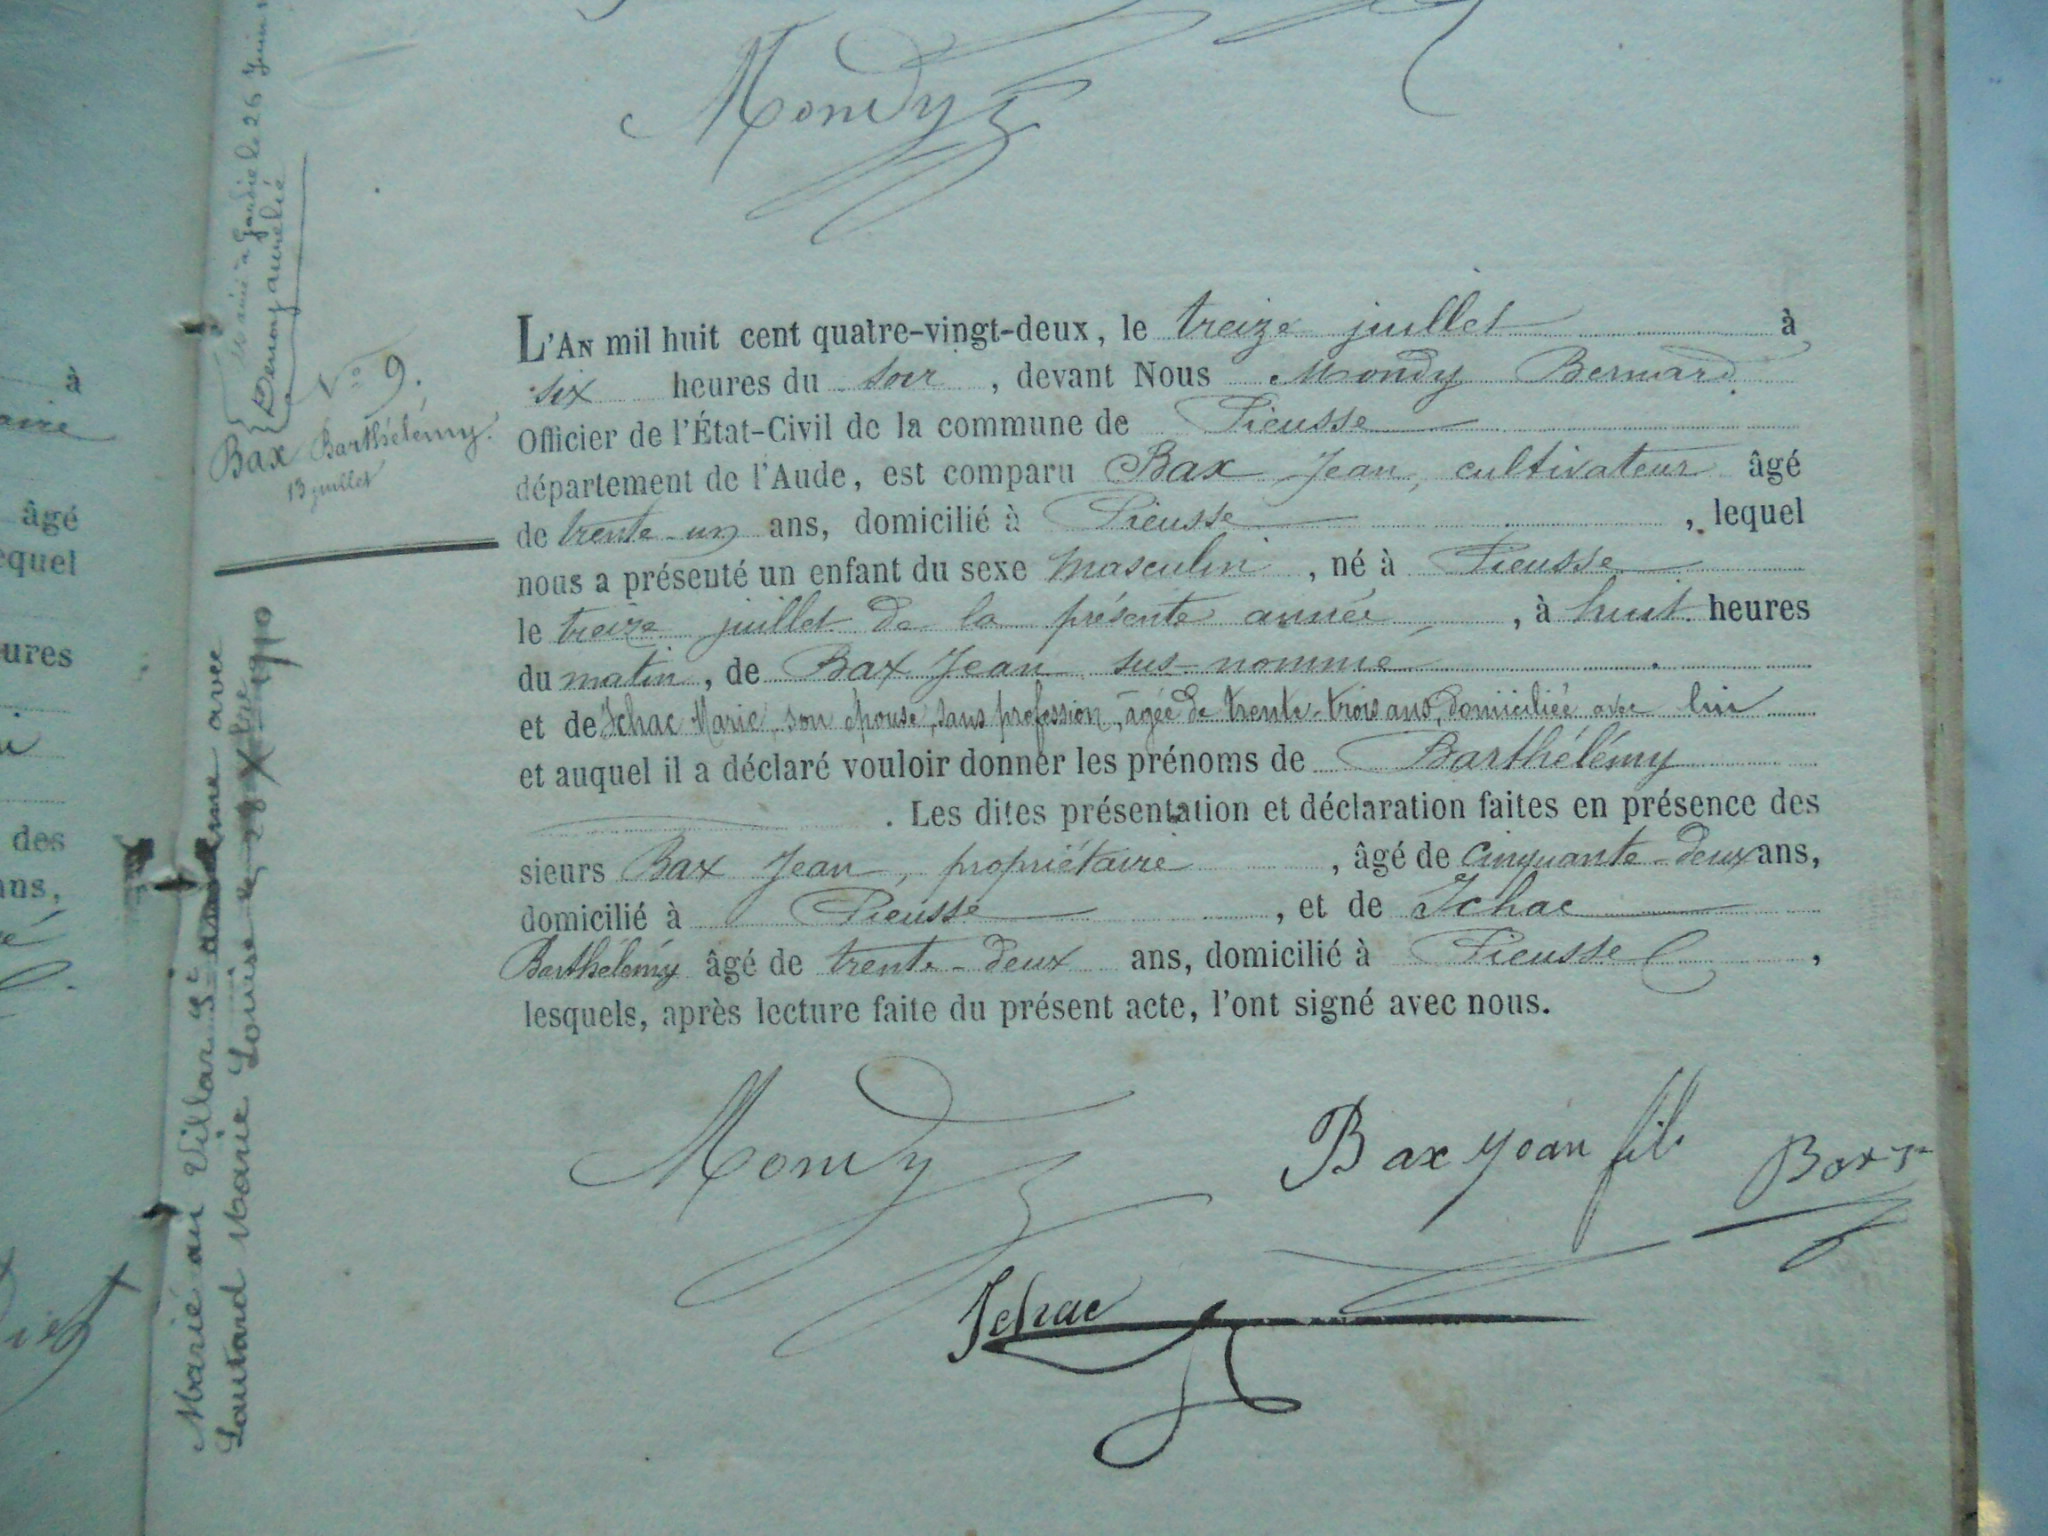 Mondy
N° 9.
Bax Barthélémy.
13 juillet
L'AN mil huit cent quatre-vingt-deux, le treize juillet à
six heures du soir, devant Nous Mondy Bernard
Officier de l'État-Civil de la commune de Pieusse
département de l'Aude, est comparu Bax Jean, cultivateur âgé
de trente-un ans, domicilié à Pieusse, lequel
nous a présenté un enfant du sexe masculin, né à Pieusse
le treize juillet de la présente année, à huit heures
du matin, de Bax Jean sus-nommé
et de Ichac Marie, son épouse, sans profession, âgée de trente-trois ans, domiciliée avec lui
et auquel il a déclaré vouloir donner les prénoms de Barthélémy
. Les dites présentation et déclaration faites en présence des
sieurs Bax Jean, propriétaire, âgé de cinquante-deux ans,
domicilié à Pieusse, et de Ichac
Barthélémy âgé de trente-deux ans, domicilié à Pieusse,
lesquels, après lecture faite du présent acte, l'ont signé avec nous.
Mondy
Bax Jean fils
Bax
Ichac
à Gardie le 26 Juin
aurelie
Marié au Villar St avec
Loutard Marie Louise le 1910
à
aire
âgé
equel
ures
des
ans,